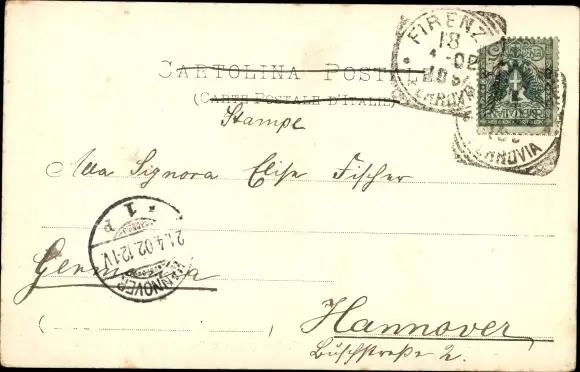 FIRENZE
18
4-02
FERROVIA
FERROVIA
CARTOLINA POSTALE
(CARTE POSTALE D'ITALIE)
Stampe
Alla Signora Elise Fischer
* 1 P
21.4.02.12-1V
HANNOVER
Germania
Hannover
Buschstraße 2.